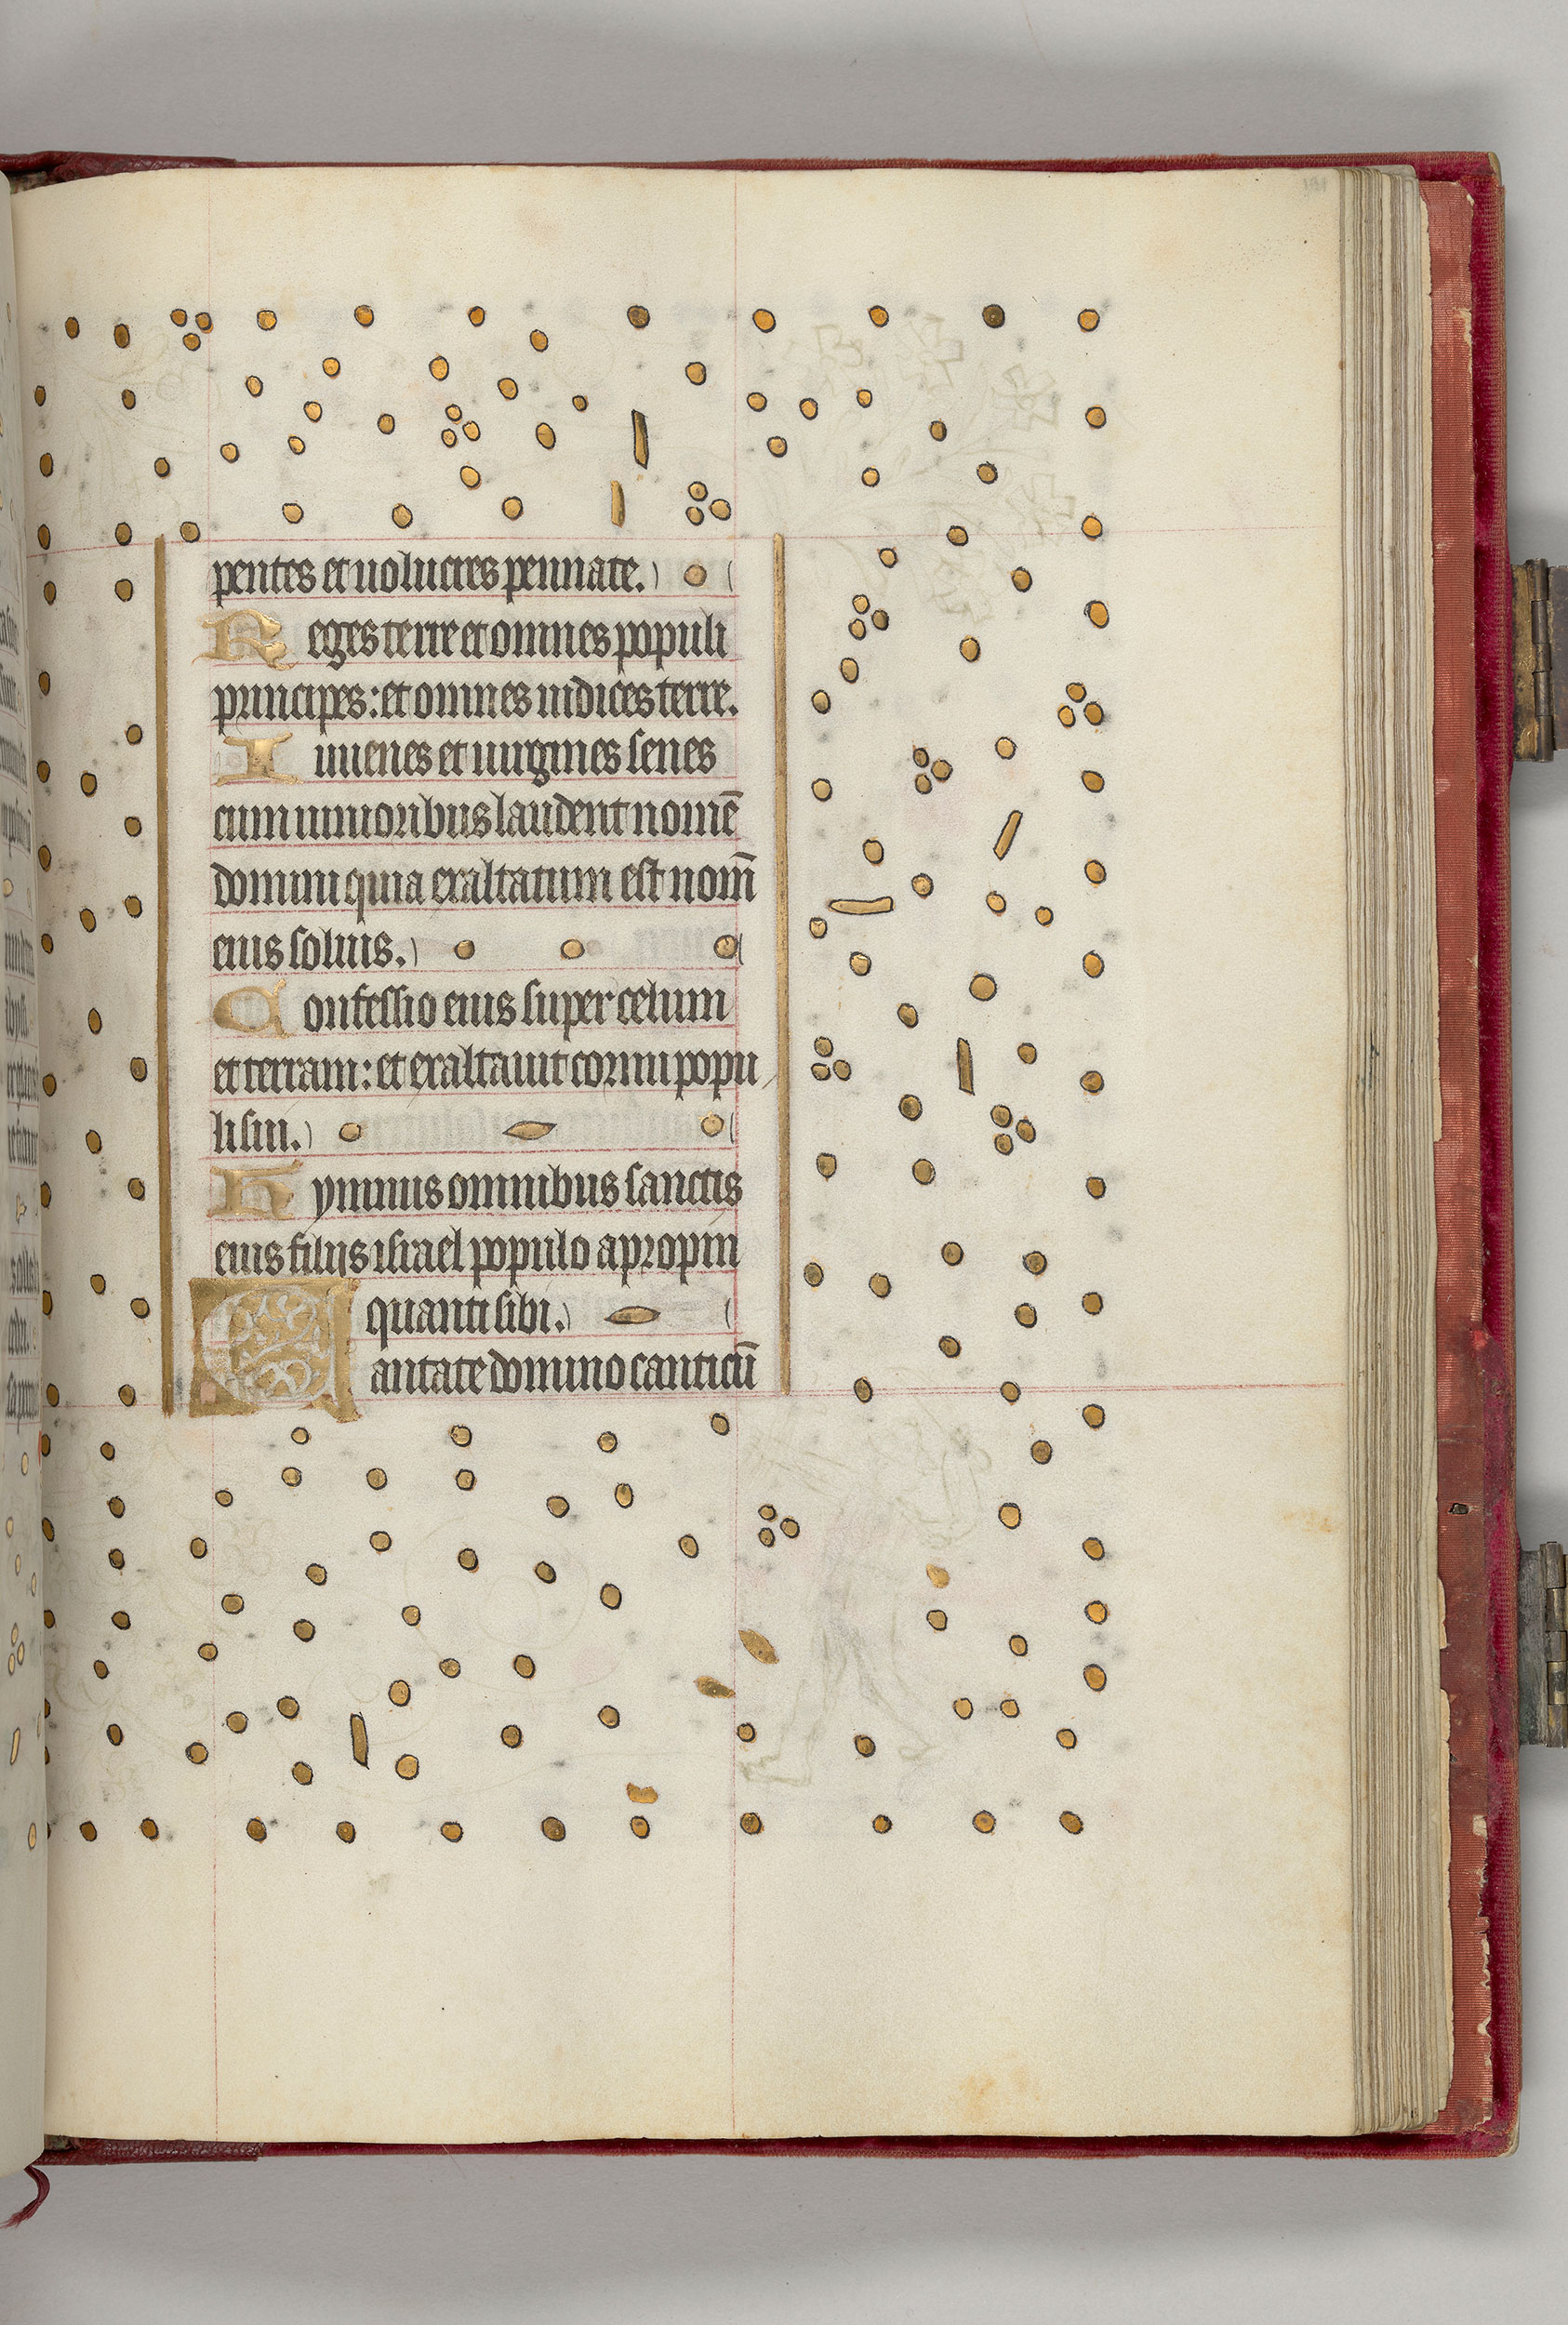 pentes et uolucres pennate.
Reges terre et omnes populi
principes: et omnes iudices terre.
Iuuenes et uirgines senes
cum iunioribus laudent nomē
domini quia exaltatum est nom̄
eius solius.
Confessio eius super celum
et terram: et exaltauit cornu popu
li sui.
Hymnus omnibus sanctis
eius filijs israel populo apropin
quanti sibi.
Cantate domino canticū